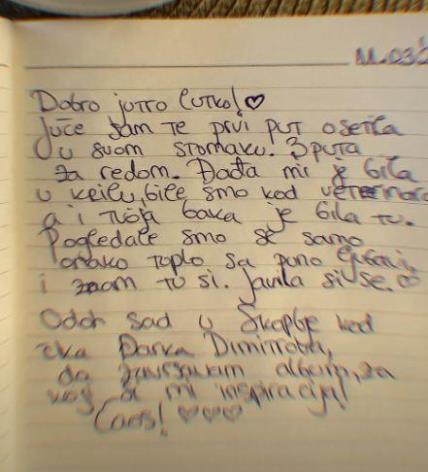 Dobro jutro lutko!♡
Juče sam te prvi put osetila
u svom stomaku. 3 puta
za redom. Đađa mi je bila
u krilu, bile smo kod veterinara
a i tvoja baka je bila tu.
Pogledale smo se samo
onako toplo sa puno ljubavi,
i znam tu si. Javila si se.♡
Odoh sad u Skoplje kod
čika Darka Dimitrova,
da završavam album, za
koji si mi inspiracija!
Caos! ♡♡♡